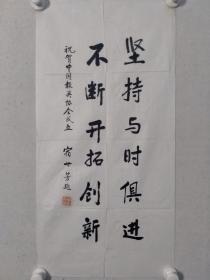 坚持与时俱进
不断开拓创新
祝贺中国报英协会成立
宿世芳题